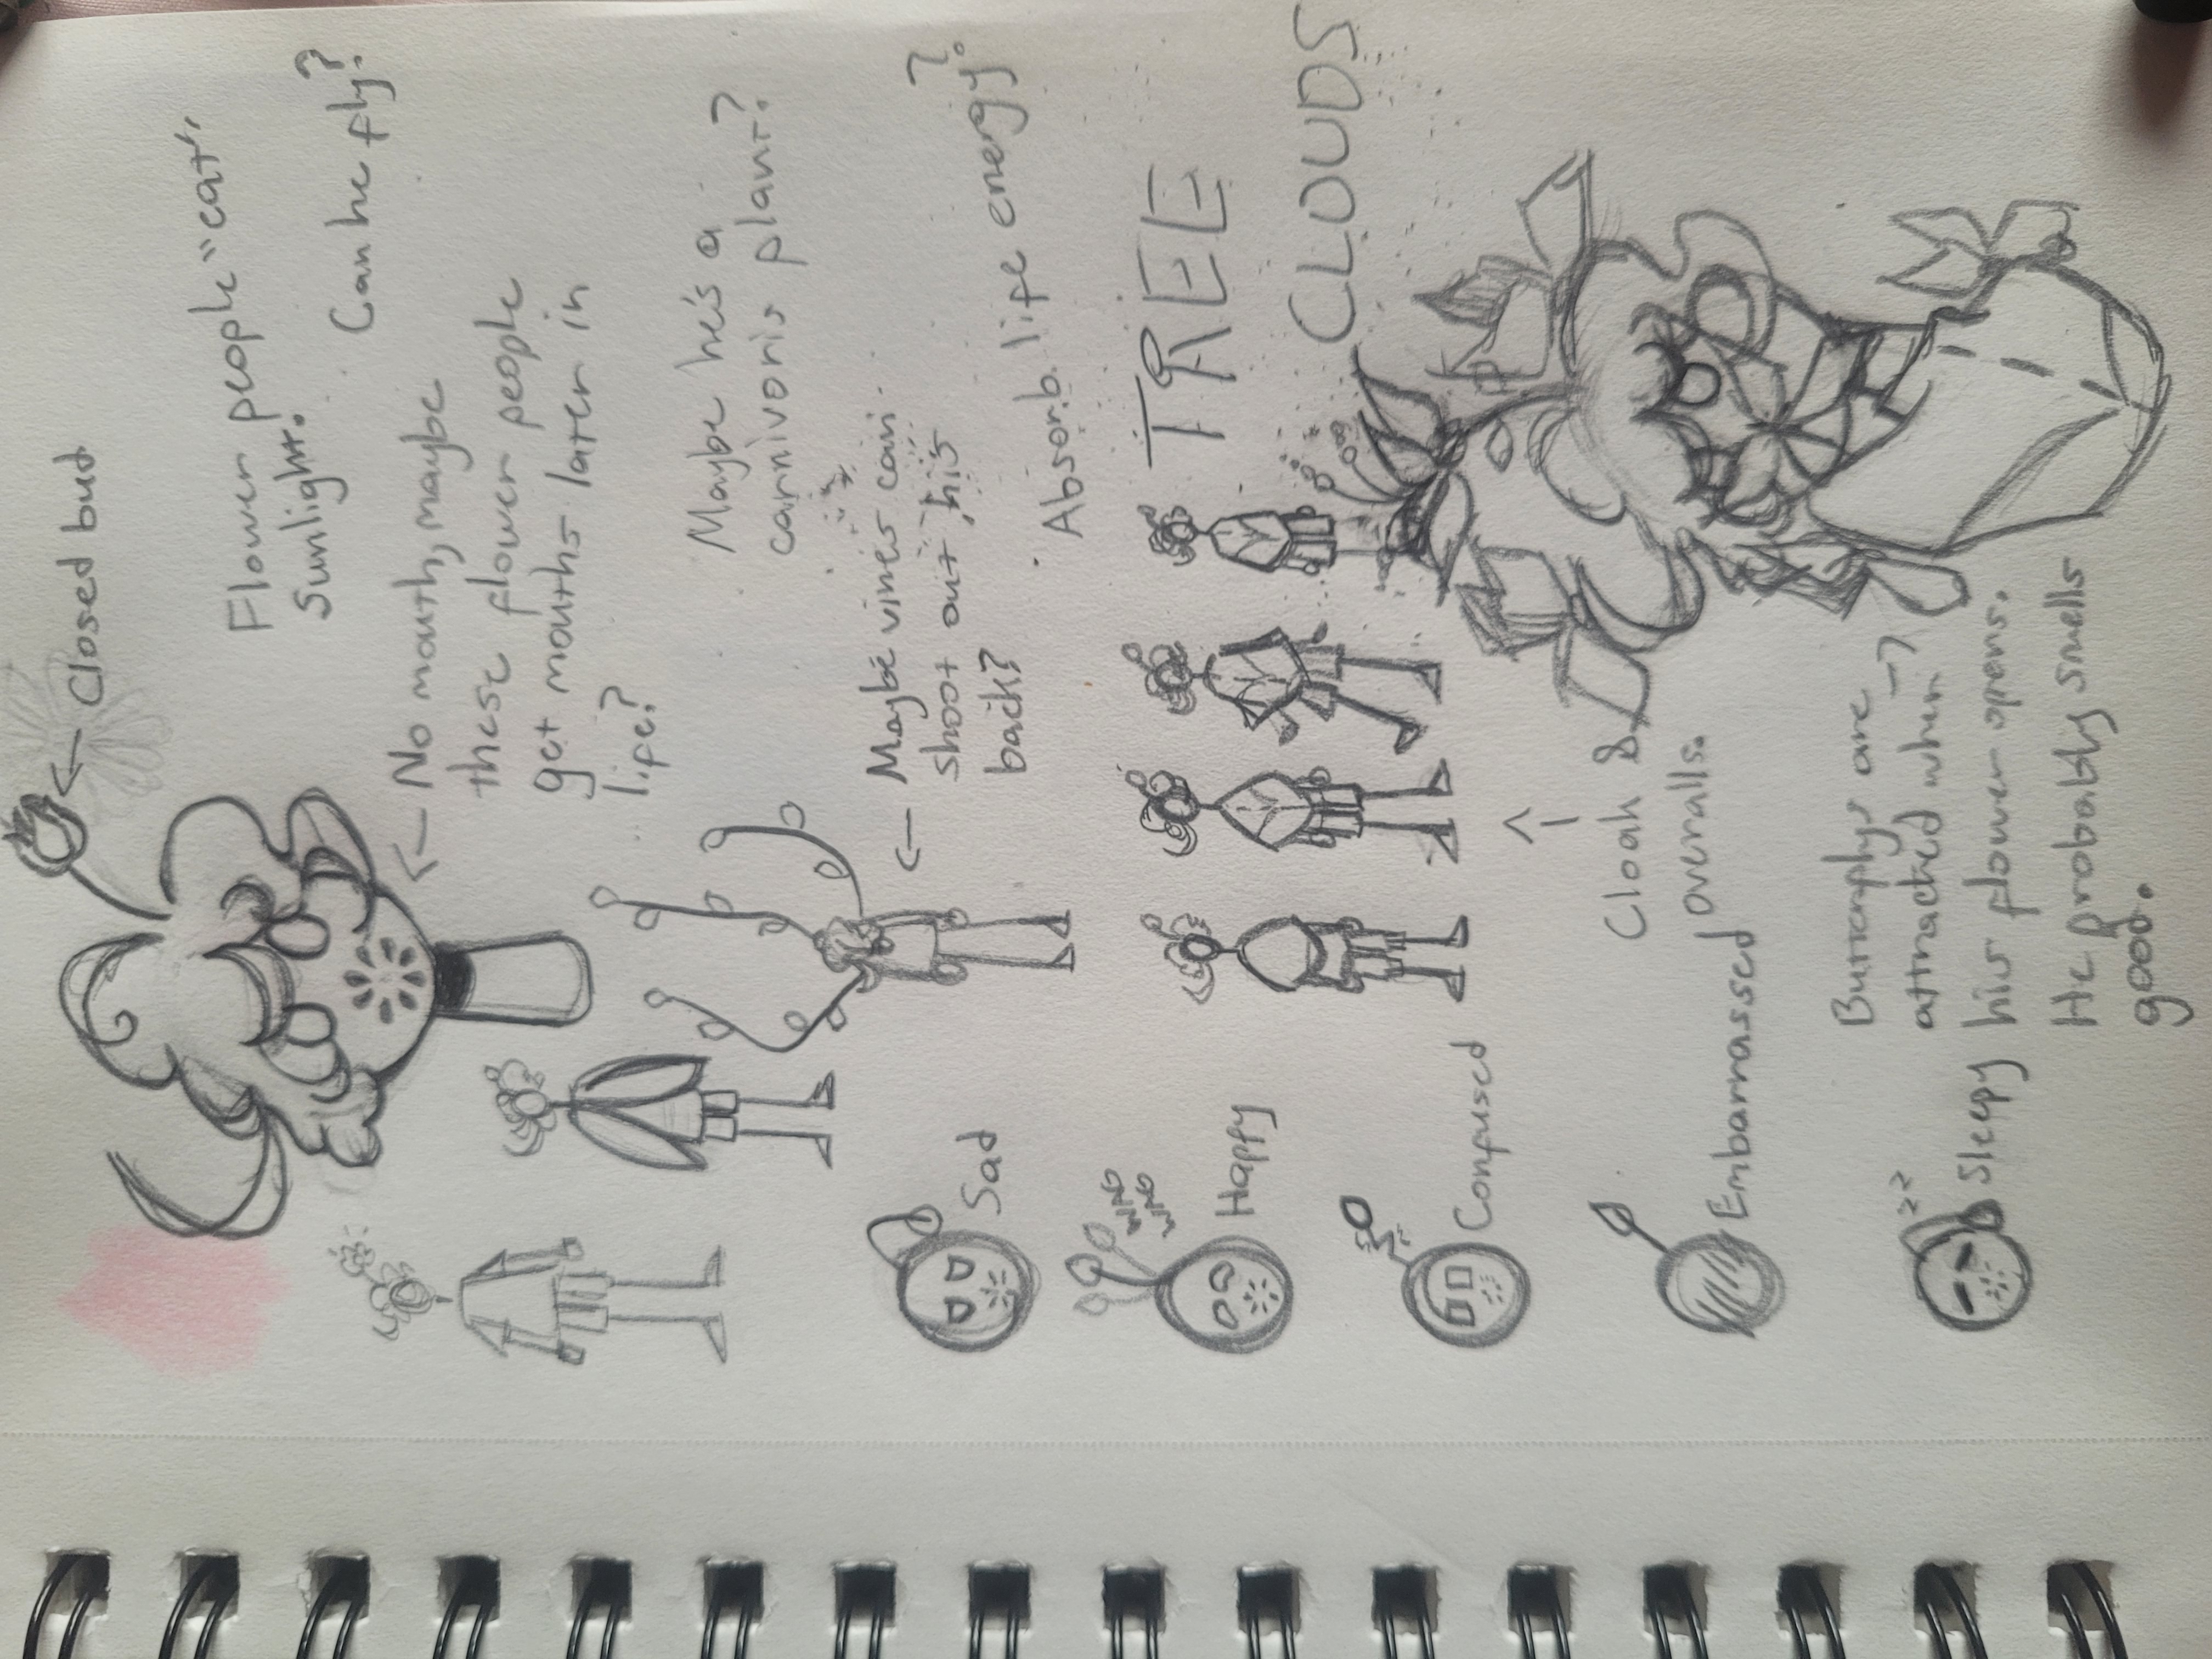 ← Closed bud
Flower people "eat"
sunlight.
Can he fly?
← No mouth, maybe
these flower people
get mouths later in
life?
Maybe he's a
carnivoris plant?
← Maybe vines can
shoot out his
back?
Absorb life energy?
TREE
CLOUDS
Sad
WING
WING
Happy
Confused
Embarrassed
zzz
Sleepy
^
|
Cloak &
overalls.
Butterphlys are →
attracted when
his flower opens.
He probably smells
good.